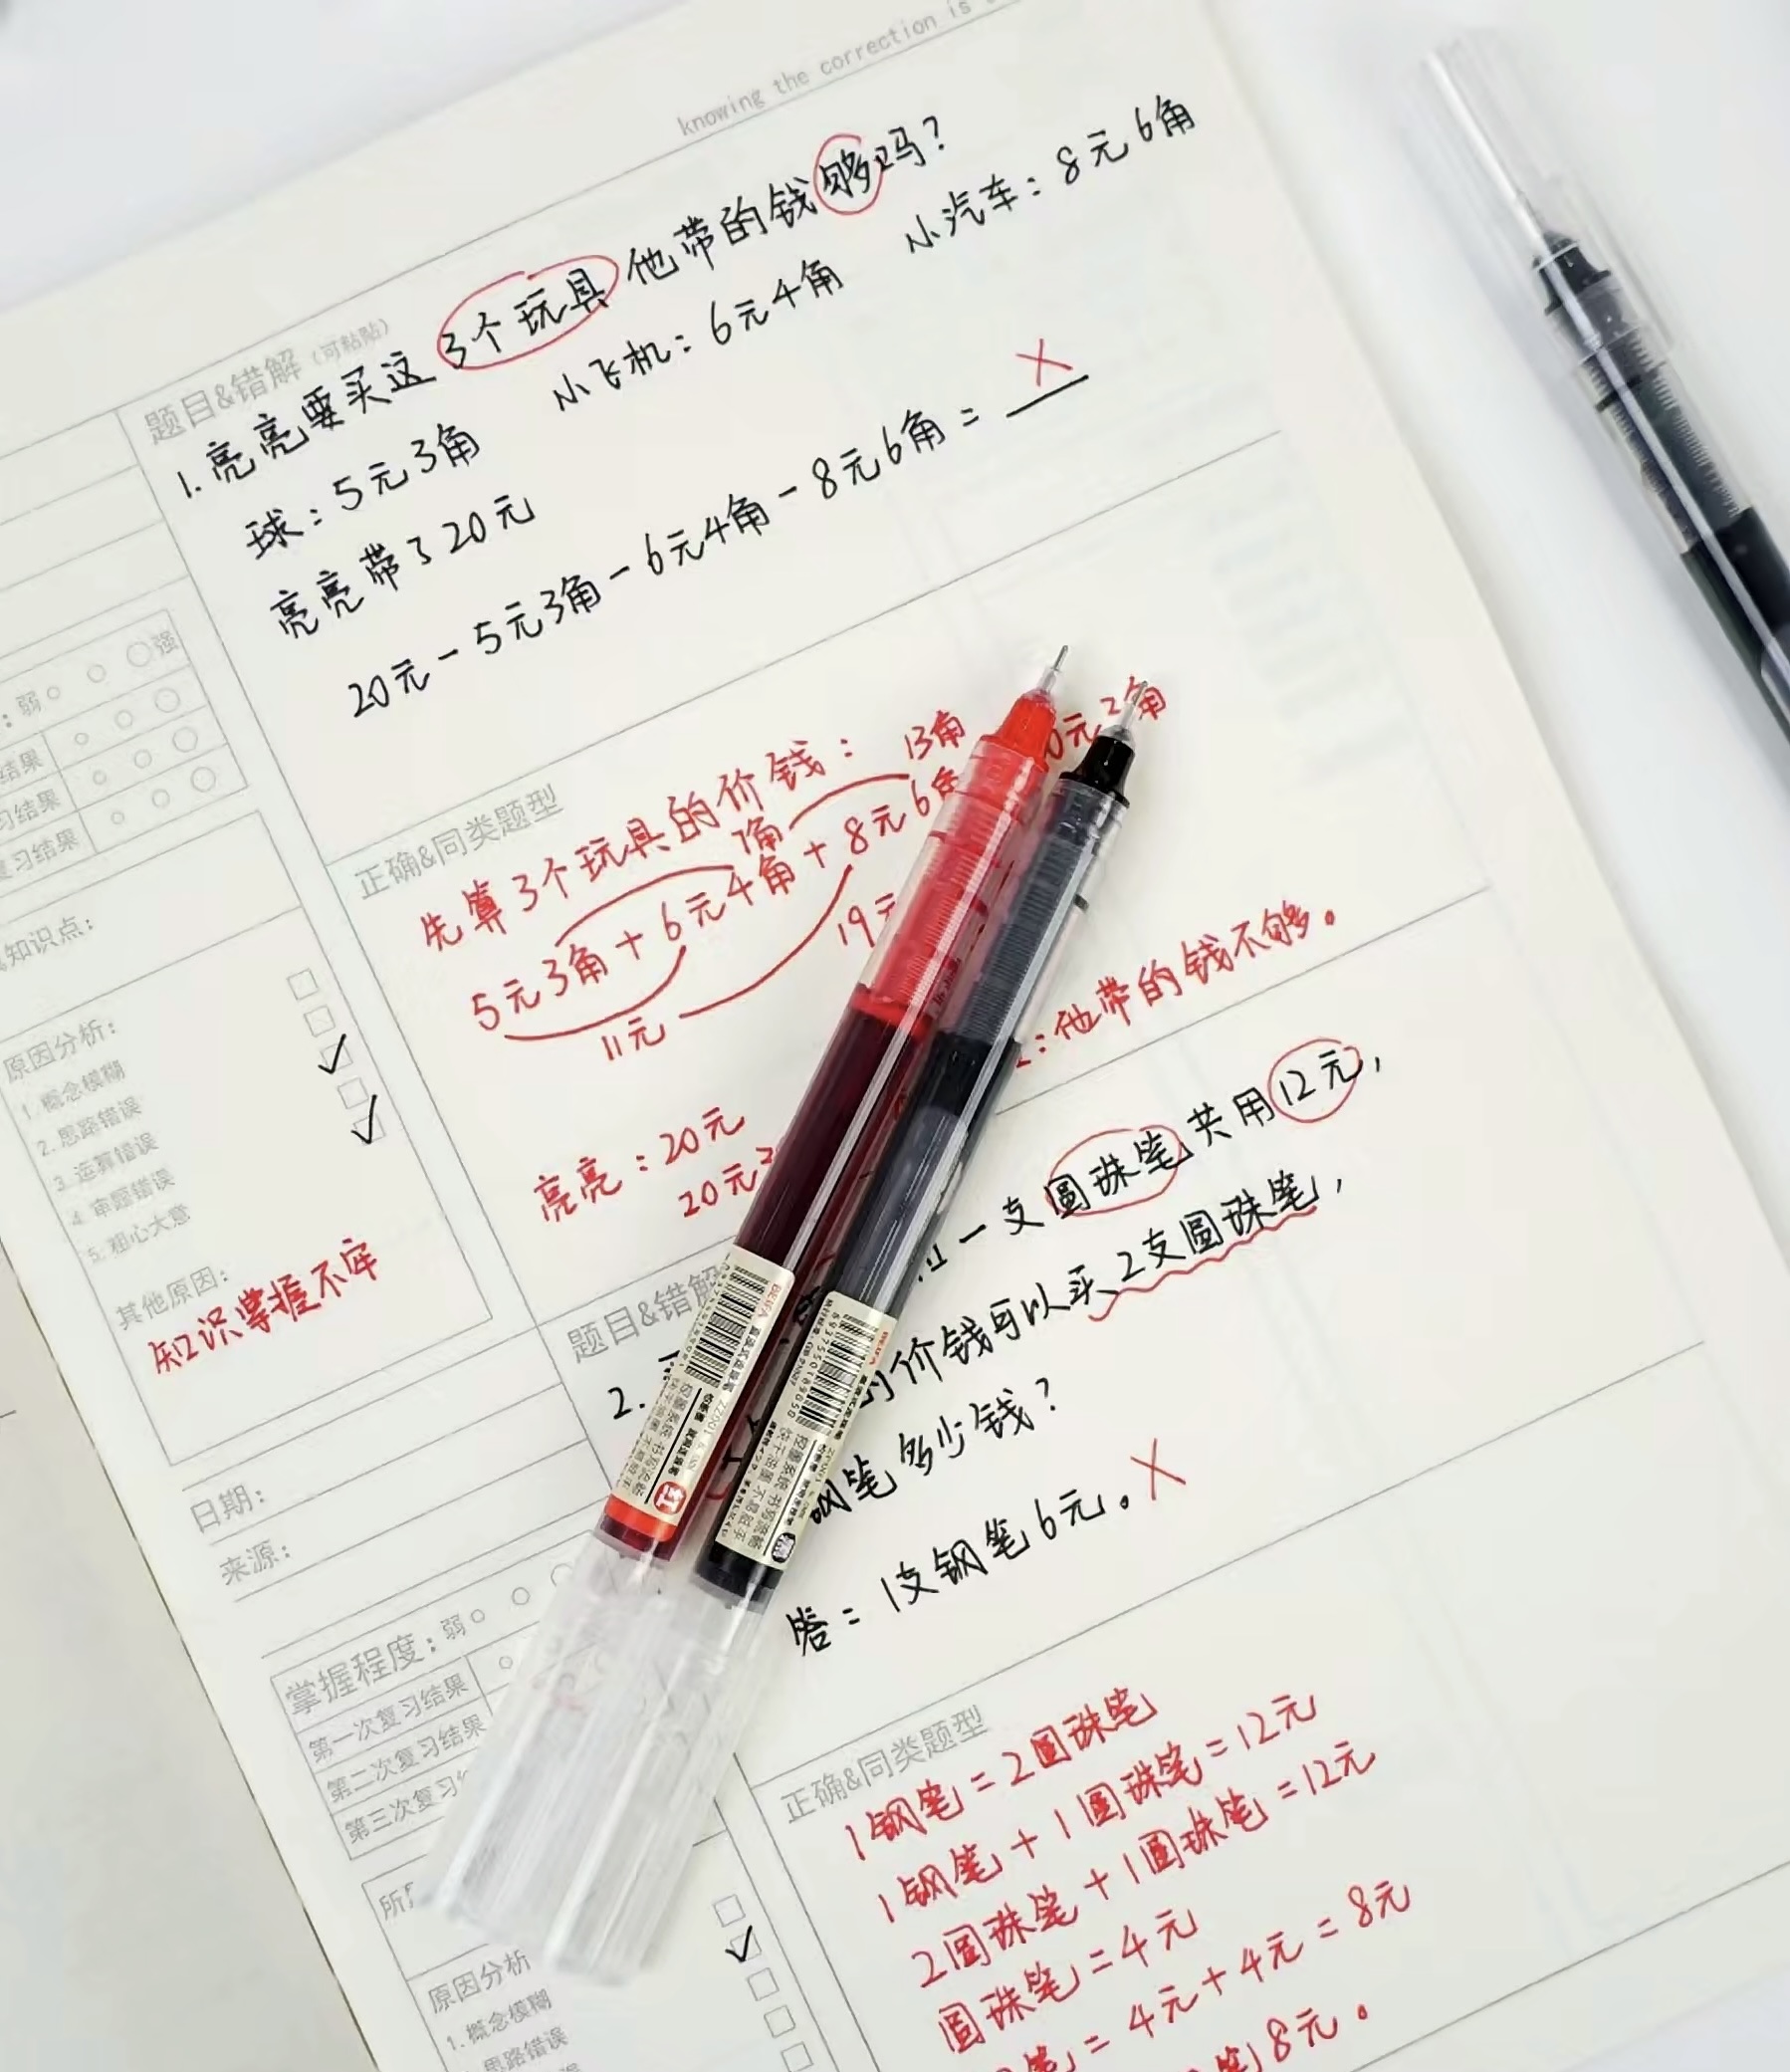 knowing the correction is
题目&错解（可粘贴）
1.亮亮要买这3个玩具他带的钱够吗？
球：5元3角 小飞机：6元4角 小汽车：8元6角
亮亮带了20元
20元-5元3角-6元4角-8元6角=
×
弱 强
结果
习结果
复习结果
知识点：
原因分析：
1. 概念模糊
2. 思路错误
3. 运算错误
4. 审题错误
5. 粗心大意
其他原因：
知识掌握不牢
日期：
来源：
正确&同类题型
先算3个玩具的价钱：
13角
2角
7角
5元3角+6元4角+8元6角
19元
11元
亮亮：20元
20元
：他带的钱不够。
题目&错解
2.
一支圆珠笔共用12元，
的价钱可以买2支圆珠笔，
钢笔多少钱？
答：1支钢笔6元。×
掌握程度：弱
第一次复习结果
第二次复习结果
第三次复习
原因分析
1. 概念模糊
思路错误
正确&同类题型
1钢笔=2圆珠笔
1钢笔+1圆珠笔=12元
2圆珠笔+1圆珠笔=12元
圆珠笔=4元
笔=4元+4元=8元
笔8元。
红